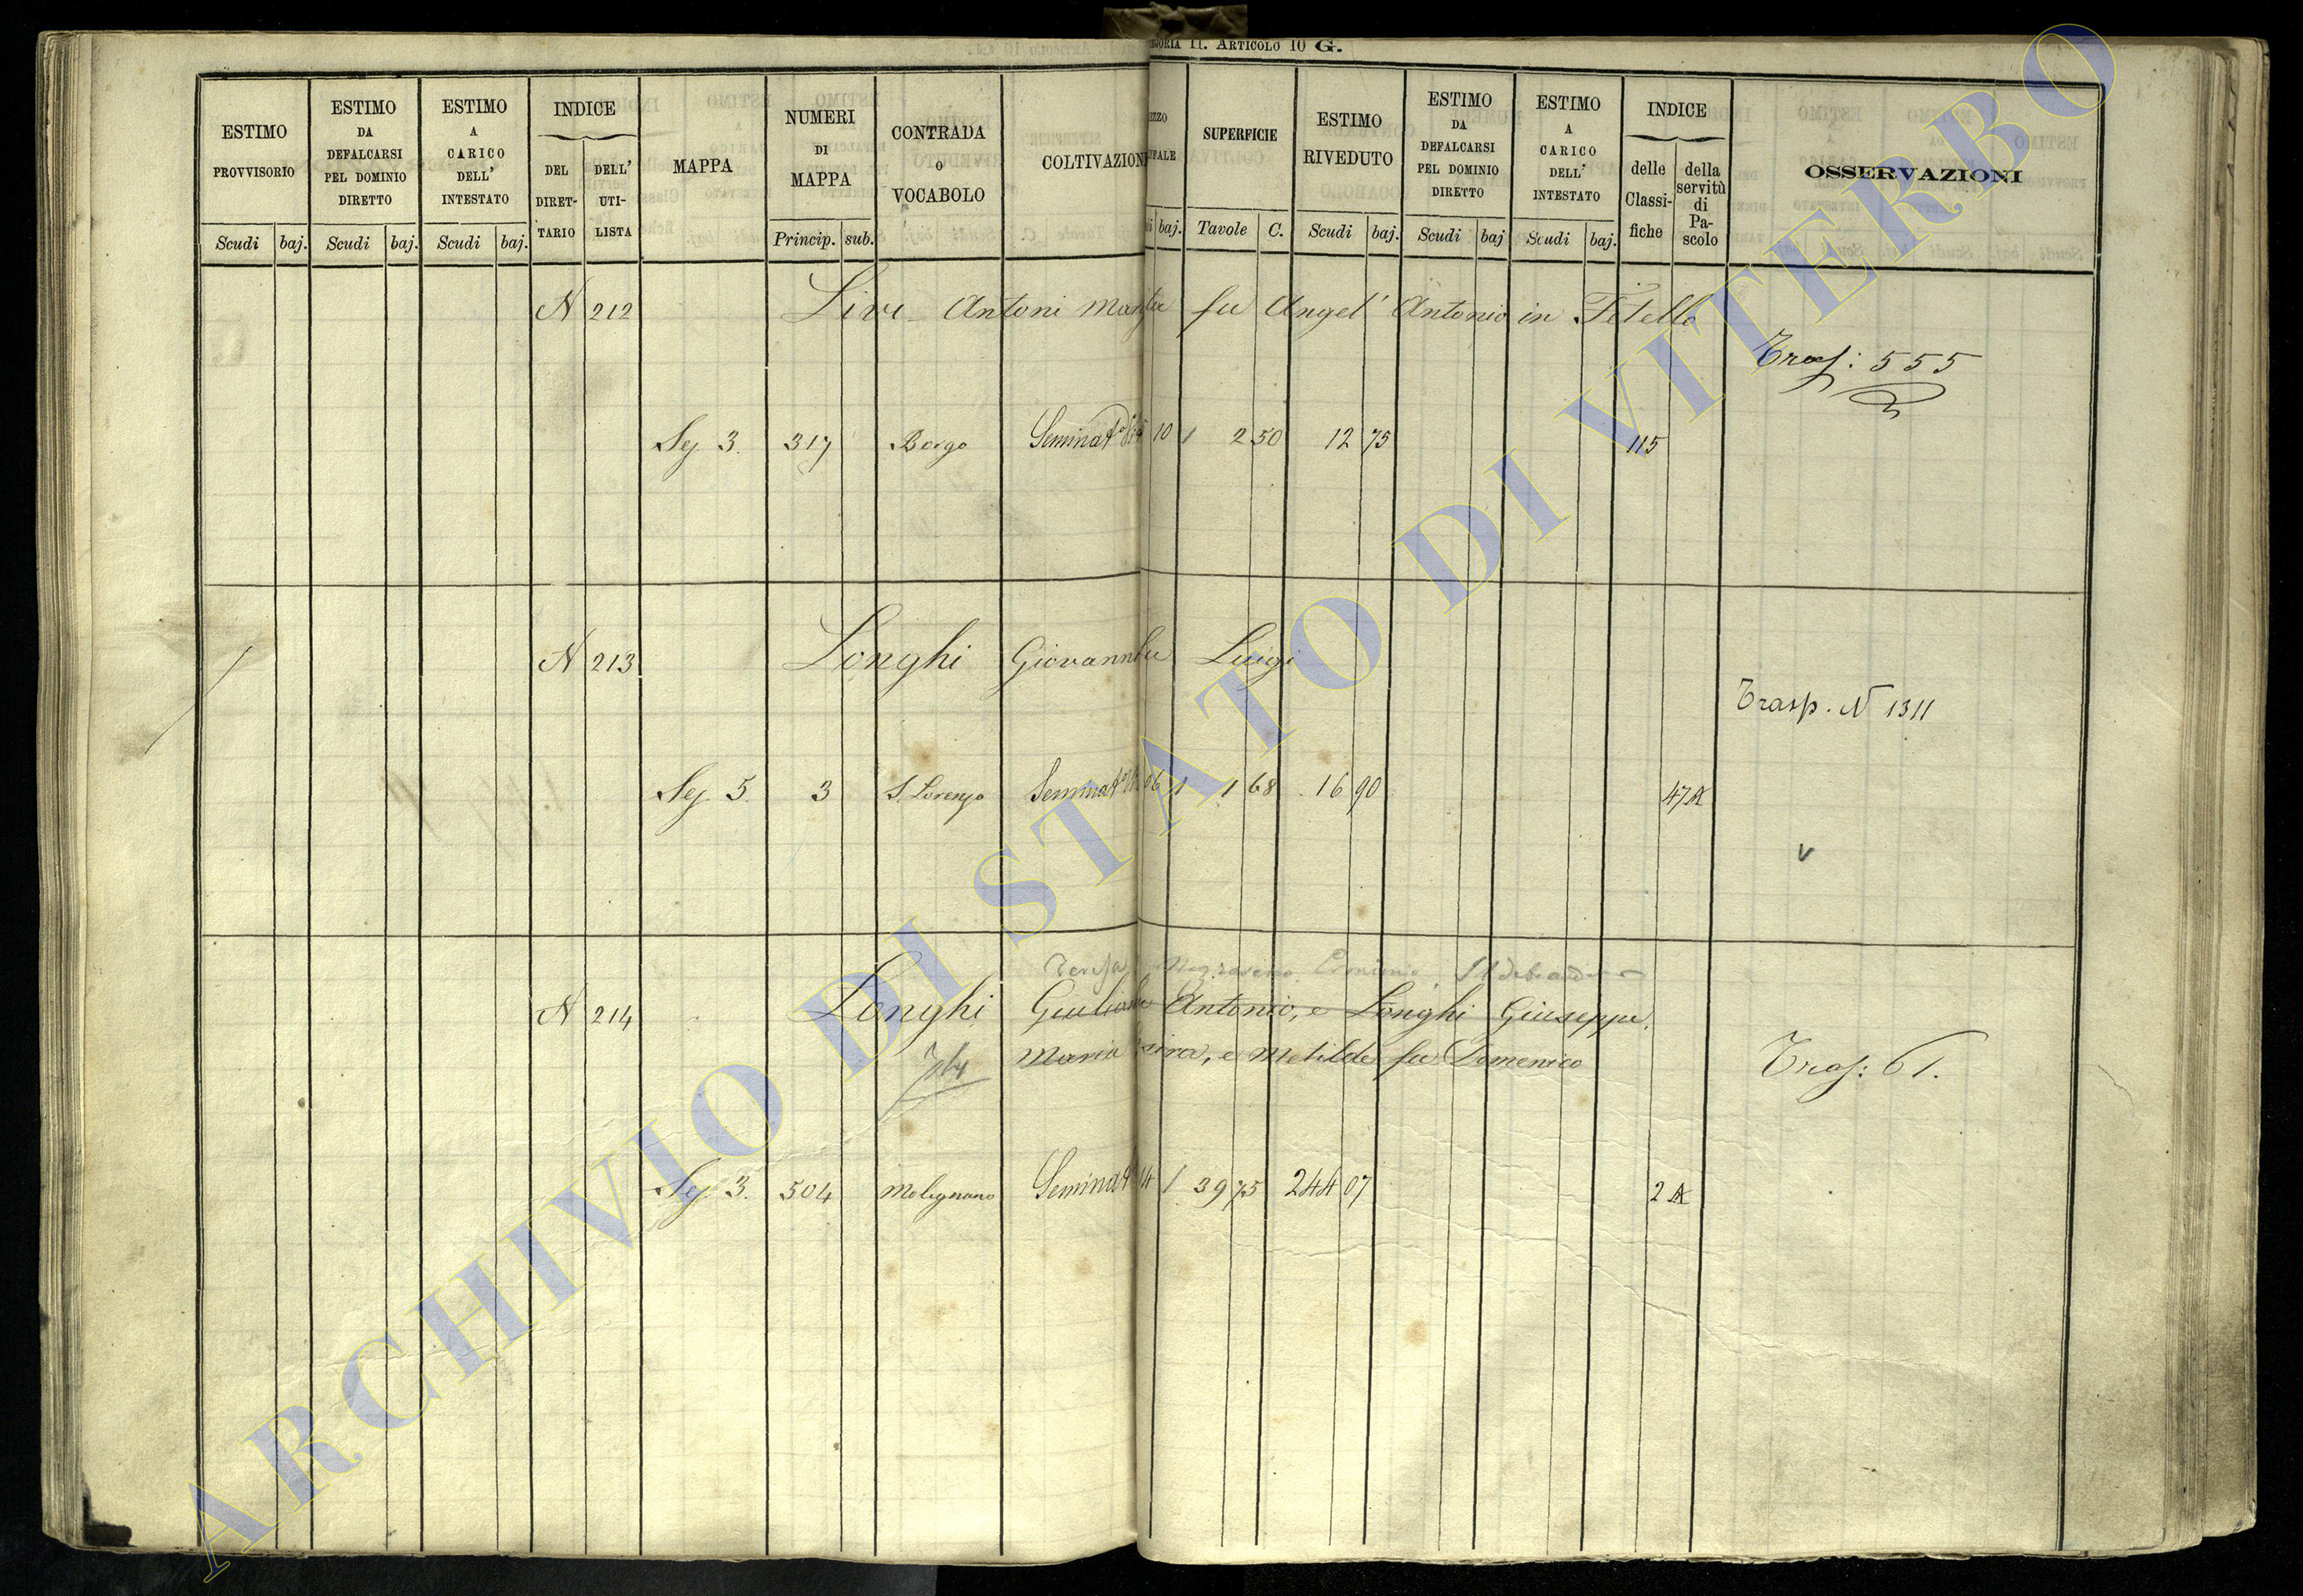 ARTICOLO 10 G.
ESTIMO PROVVISORIO
ESTIMO DA DEFALCARSI PEL DOMINIO DIRETTO
ESTIMO A CARICO DELL' INTESTATO
INDICE
DEL DIRET-TARIO
DELL' UTI-LISTA
MAPPA
NUMERI DI MAPPA
CONTRADA O VOCABOLO
COLTIVAZION
SUPERFICIE
ESTIMO RIVEDUTO
ESTIMO DA DEFALCARSI PEL DOMINIO DIRETTO
ESTIMO A CARICO DELL' INTESTATO
INDICE
delle Classi-fiche
della servitù di Pa-scolo
OSSERVAZIONI
Scudi baj. Scudi baj. Scudi baj. Princip. sub. baj. Tavole C. Scudi baj. Scudi baj Scudi baj.
N 212 Livi Antoni fu Angel' Antonio in
Tras: 555
Sez 3. 317 Borgo Seminat 10 1 2 50 12 75 115
N 213 Longhi Luigi
Trasp. N 1311
Sez 5. 3 S. Lorenzo Seminat 06 1 1 68 16 90 47 A
V
Teresa Erminia
N 214 Longhi Antonio, e Longhi Giuseppe,
Maria e Metilde fu Domenico
Tras: 61.
Sez 3. 504 Molegnano Seminat 14 1 39 75 244 07 2 A
ARCHIVIO DI STATO DI VITERBO